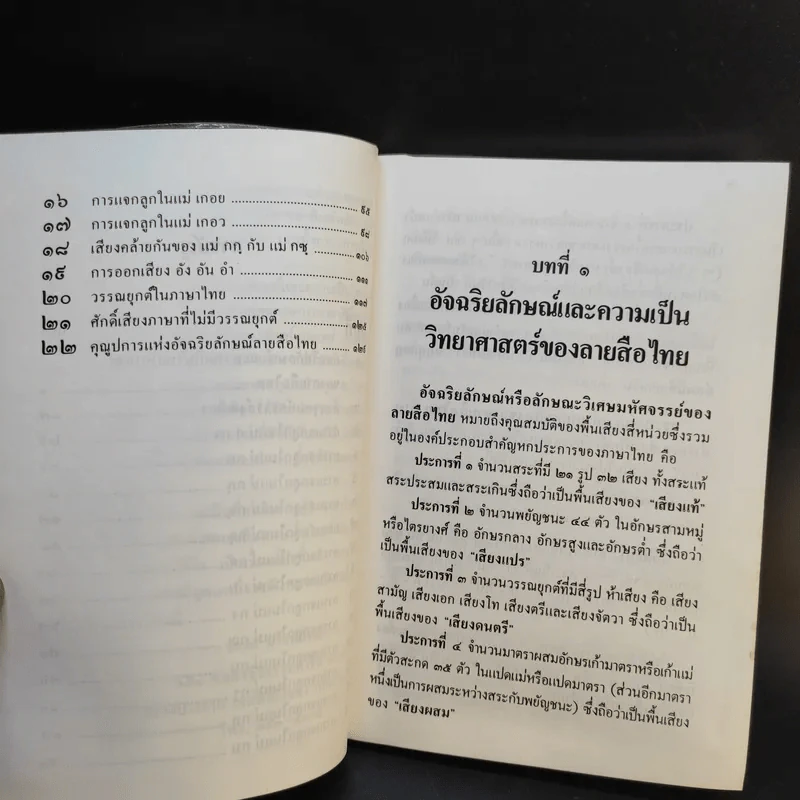 ๑๖ การแจกลูกในแม่ เกอย
๑๗ การแจกลูกในแม่ เกอว
๑๘ เสียงคล้ายกันของ แม่ กกฺ กับ แม่ กชฺ ๑๐๖
๑๙ การออกเสียง อัง อัน อำ ๑๑๑
๒๐ วรรณยุกต์ในภาษาไทย ๑๑๗
๒๑ ศักดิ์เสียงภาษาที่ไม่มีวรรณยุกต์
๒๒ คุณูปการแห่งอัจฉริยลักษณ์ลายสือไทย
บทที่ ๑
อัจฉริยลักษณ์และความเป็น
วิทยาศาสตร์ของลายสือไทย
อัจฉริยลักษณ์หรือลักษณะวิเศษมหัศจรรย์ของ
ลายสือไทย หมายถึงคุณสมบัติของพื้นเสียงสี่หน่วยซึ่งรวม
อยู่ในองค์ประกอบสำคัญหกประการของภาษาไทย คือ
ประการที่ ๑ จำนวนสระที่มี ๒๑ รูป ๓๒ เสียง ทั้งสระแท้
สระประสมและสระเกินซึ่งถือว่าเป็นพื้นเสียงของ "เสียงแท้"
ประการที่ ๒ จำนวนพยัญชนะ ๔๔ ตัว ในอักษรสามหมู่
หรือไตรยางศ์ คือ อักษรกลาง อักษรสูงและอักษรต่ำ ซึ่งถือว่า
เป็นพื้นเสียงของ "เสียงแปร"
ประการที่ ๓ จำนวนวรรณยุกต์ที่มีสี่รูป ห้าเสียง คือ เสียง
สามัญ เสียงเอก เสียงโท เสียงตรีและเสียงจัตวา ซึ่งถือว่าเป็น
พื้นเสียงของ "เสียงดนตรี"
ประการที่ ๔ จำนวนมาตราผสมอักษรเก้ามาตราหรือเก้าแม่
ที่มีตัวสะกด ๓๕ ตัว ในแปดแม่หรือแปดมาตรา (ส่วนอีกมาตรา
หนึ่งเป็นการผสมระหว่างสระกับพยัญชนะ) ซึ่งถือว่าเป็นพื้นเสียง
ของ "เสียงผสม"